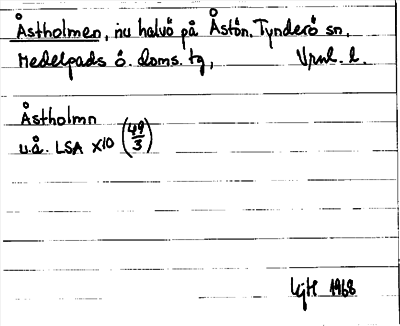 Åstholmen, nu halvö på Åstön, Tynderö sn,
Medelpads ö. doms. tg, Vrnl. l.
Åstholmn
u.å. LSA X10 (49/3)
1968